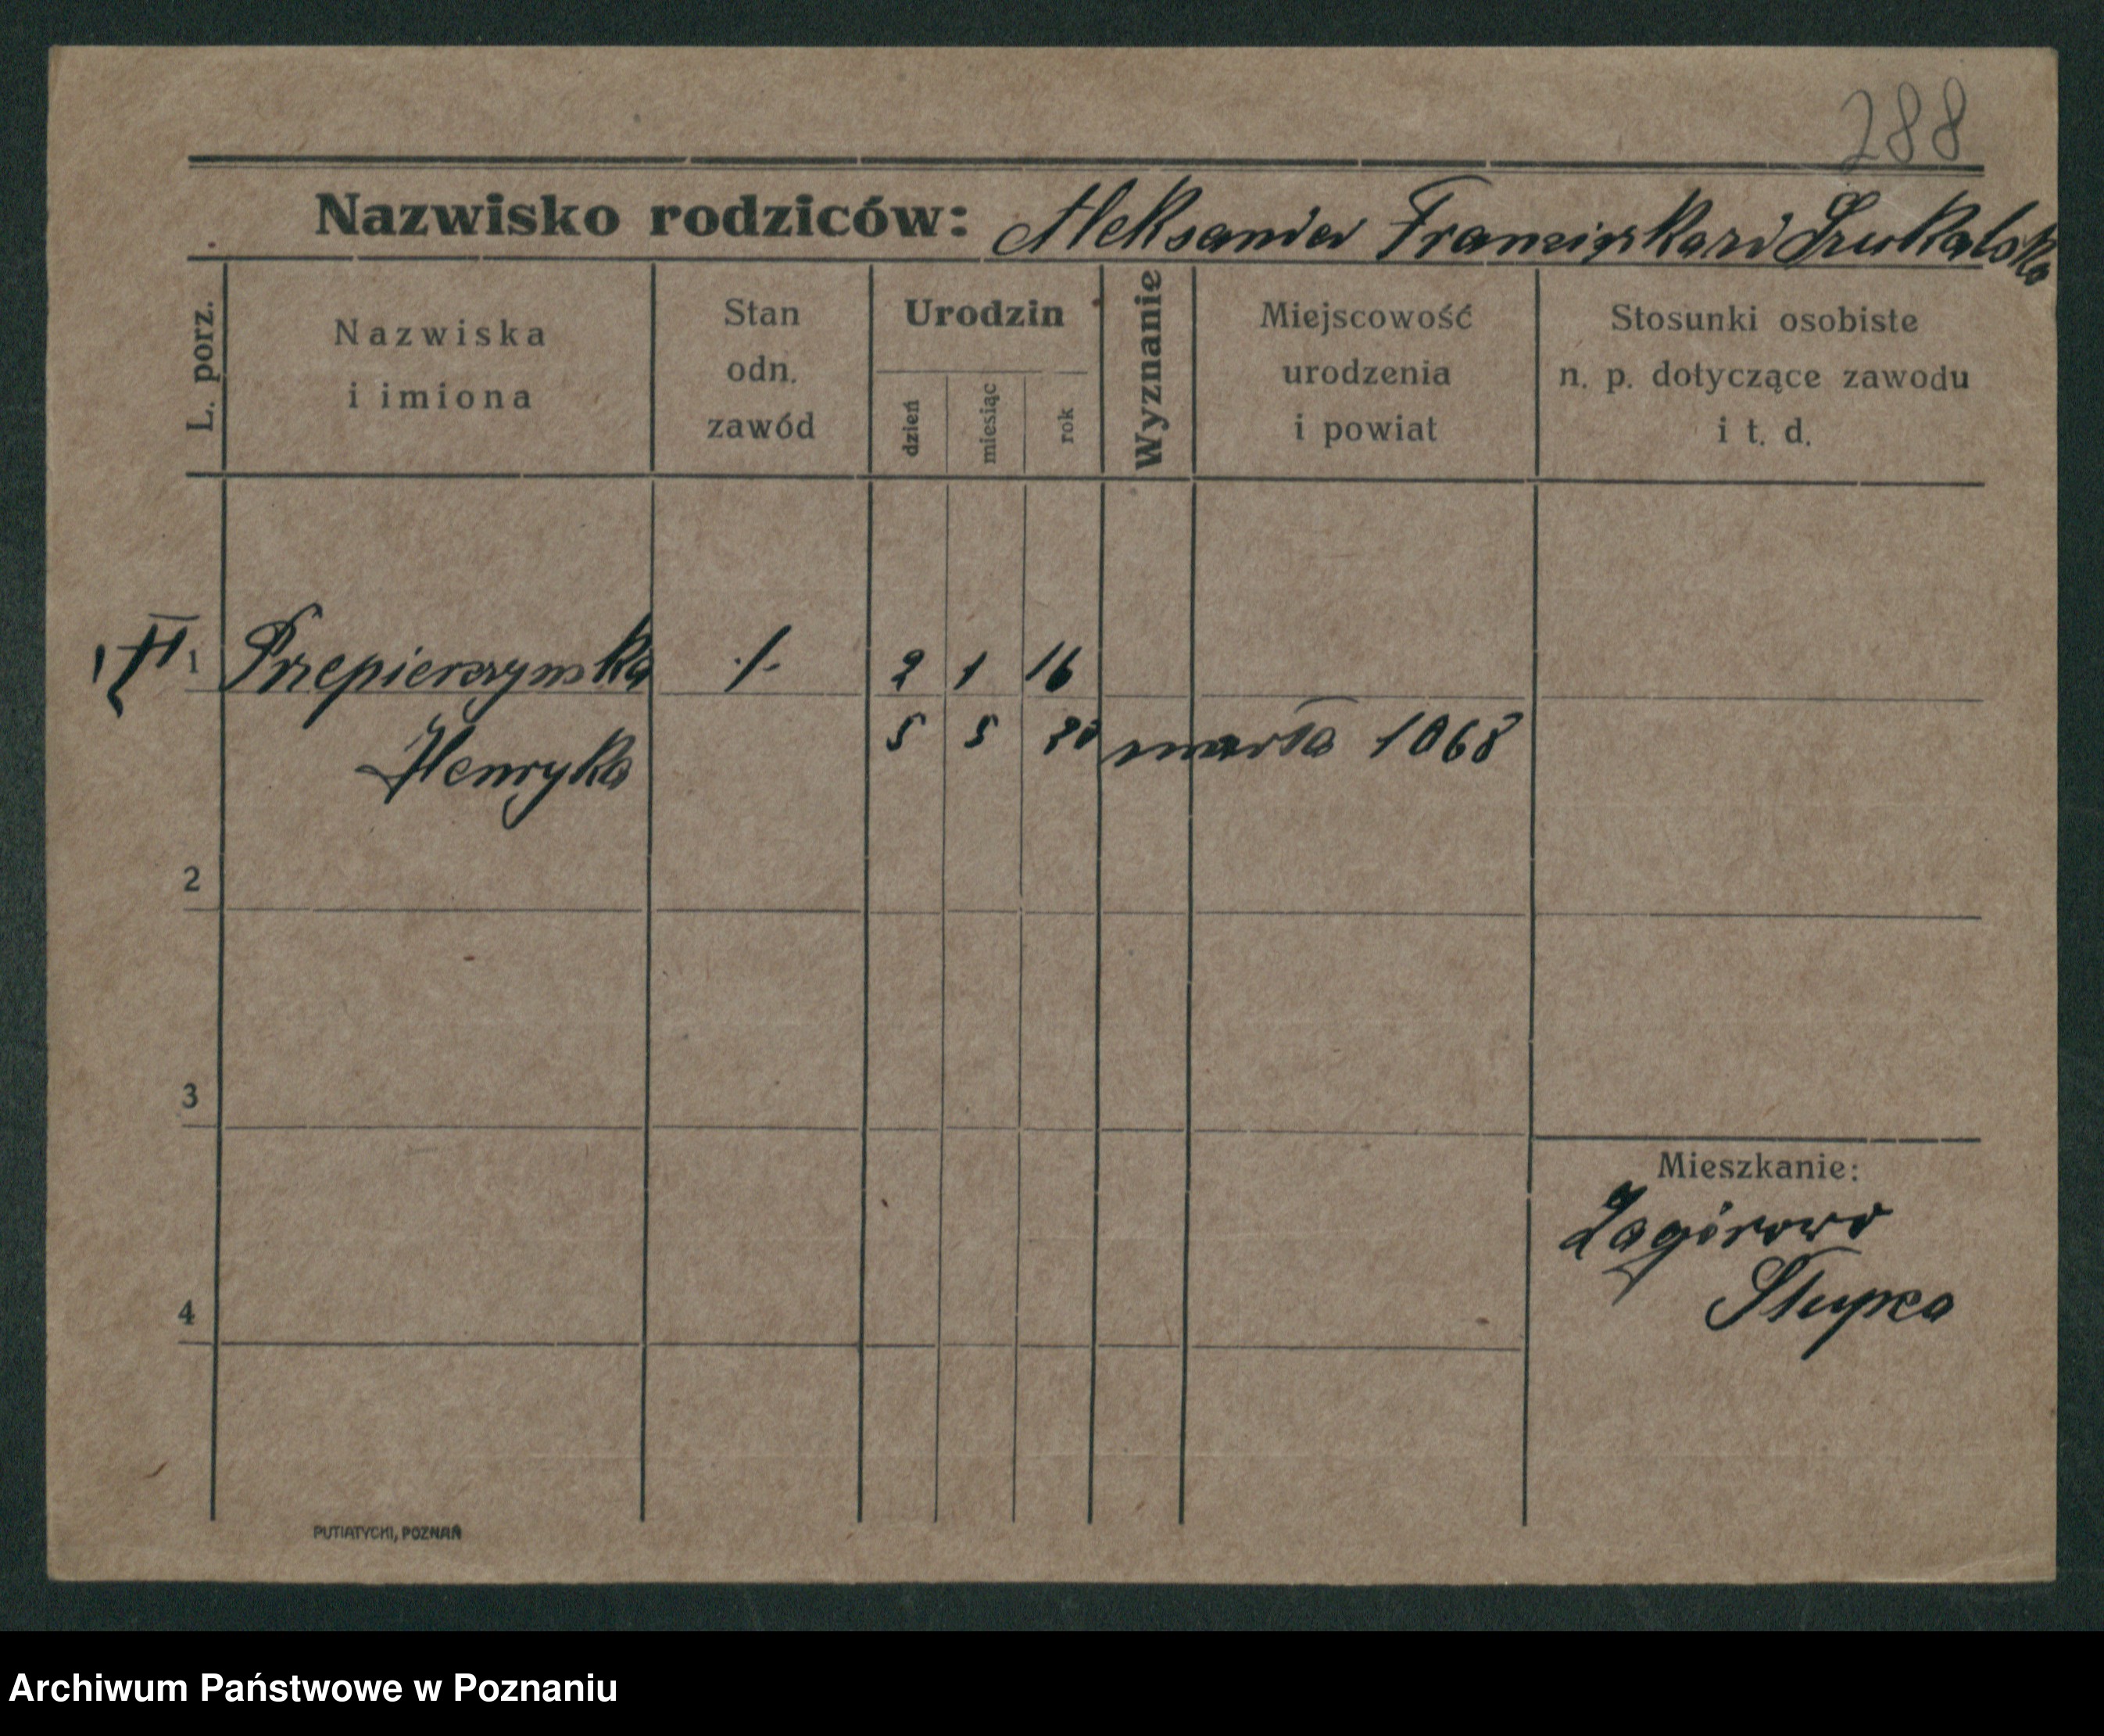 288
Nazwisko rodziców: Aleksander Franciszka zd Szukalska
L. porz.
Nazwiska
i imiona
Stan
odn.
zawód
Urodzin
dzień
miesiąc
rok
Wyznanie
Miejscowość
urodzenia
i powiat
Stosunki osobiste
n. p. dotyczące zawodu
i t. d.
1 Przepierszyńska ./. 2 1 16
Henryka 5 5 20 marła 1068
2
3
4
Mieszkanie:
Zagórowo
Słupca
PUTIATYCKI, POZNAŃ
Archiwum Państwowe w Poznaniu